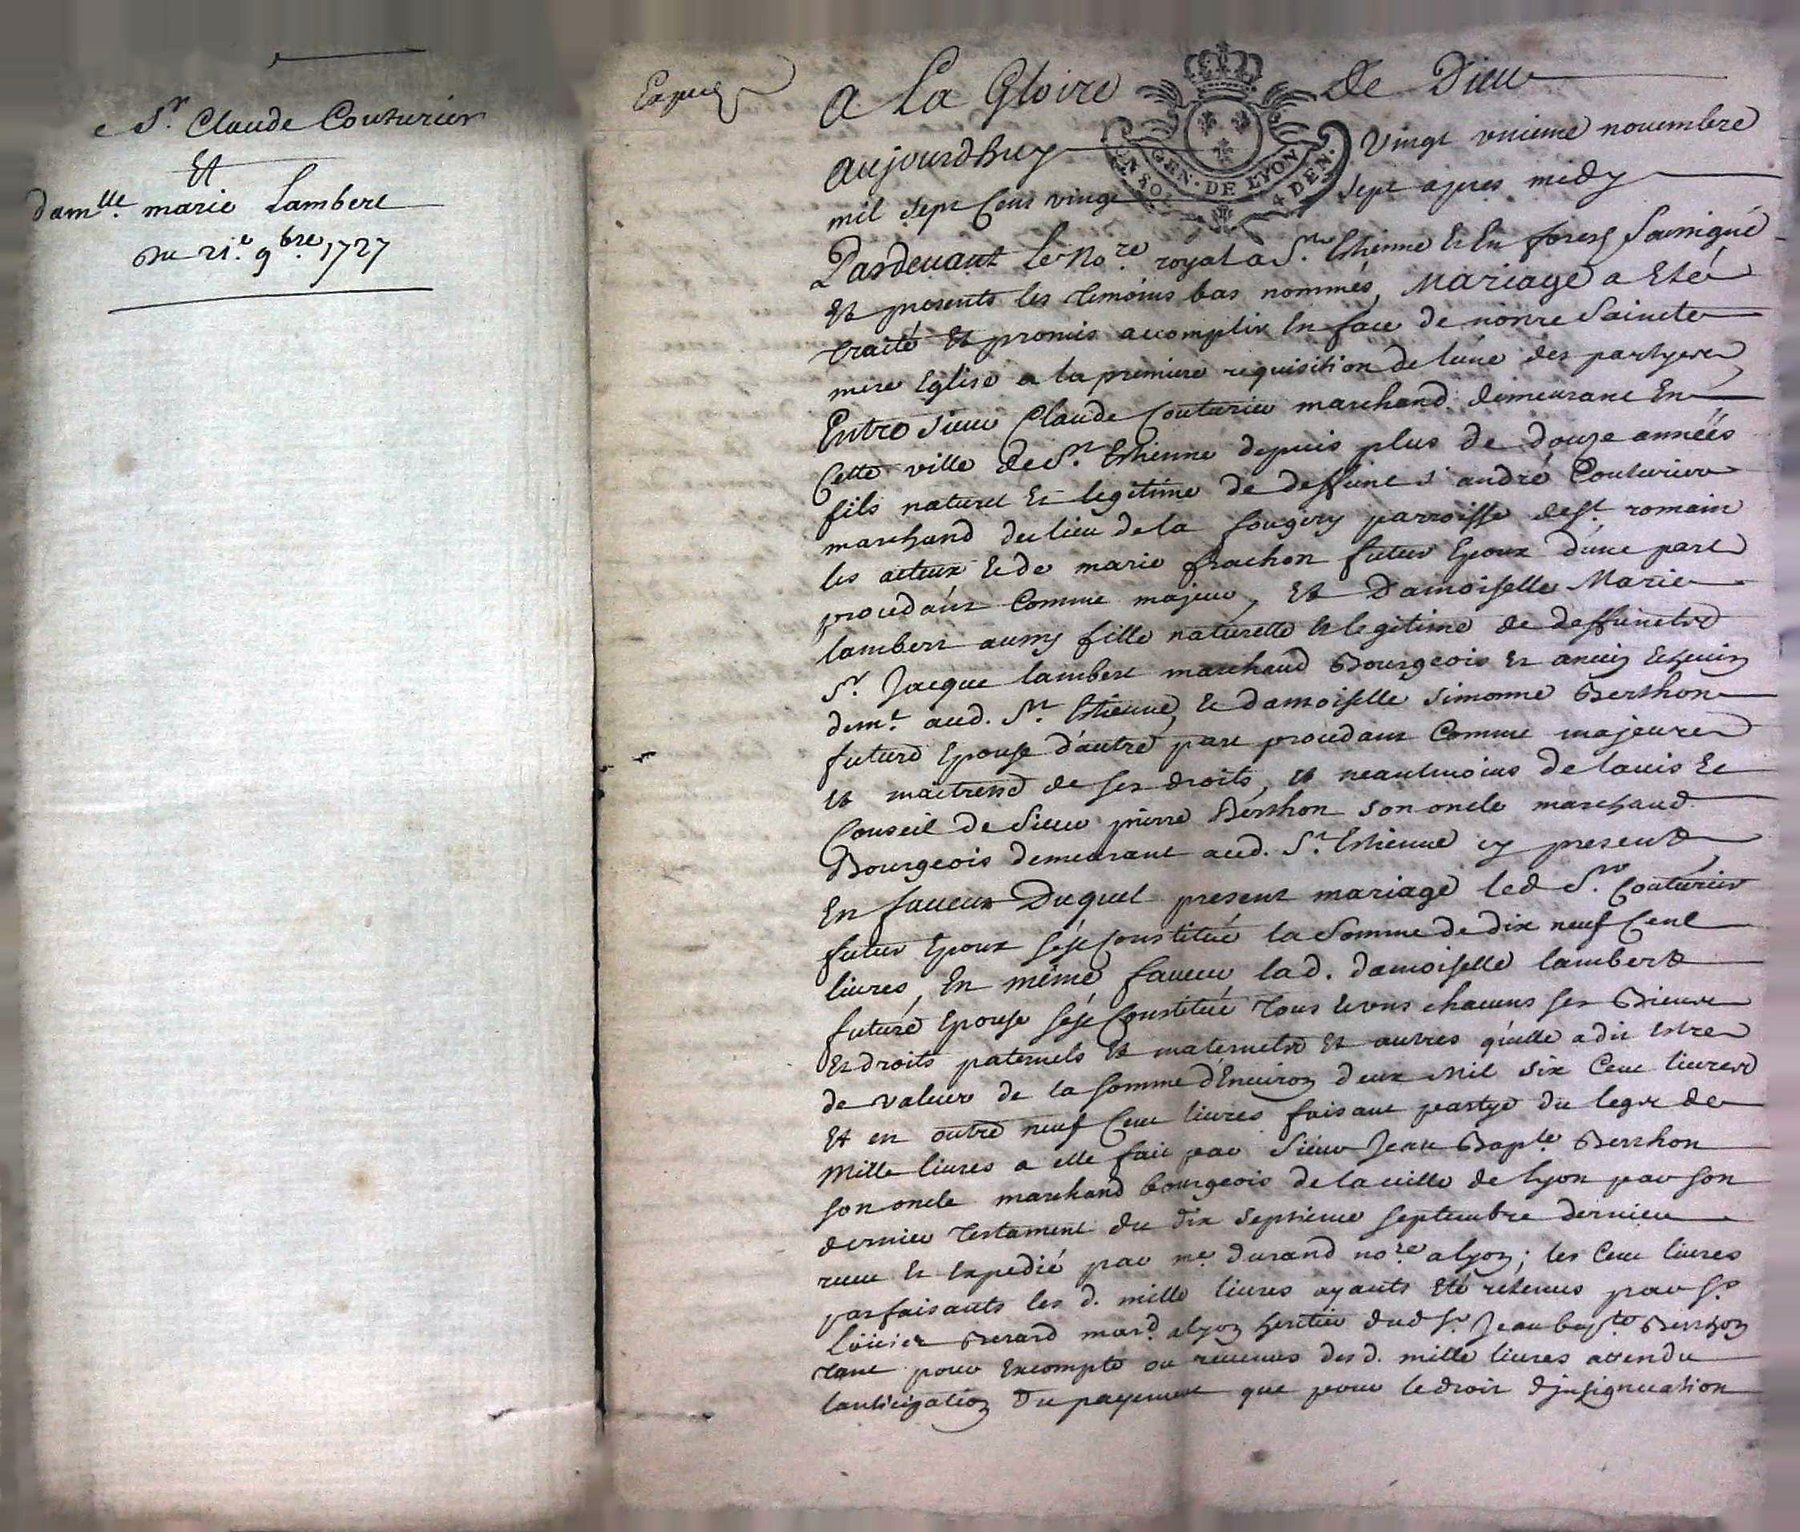 Sr. Claude Couturier
Et
damlle. marie Lambert
Du 21e. 9bre. 1727
Expedie
a La Gloire de Dieu
GEN. DE LYON
4 DEN.
aujourdhuy Vingt unieme novembre
mil sept Cens vingt sept apres midy
Pardevant Le Nore. royal a St. Etienne Et En forest soussigné
Et presents les temoins bas nommés, Mariage a Eté
traité Et promis accomplir En face de nôtre Saincte
mere Eglise a la premiere requisition de lune des partyes
Entre sieur Claude Couturier marchand demeurant En
Cette ville de St. Etienne depuis plus de douze années
fils naturel Et legitime de deffunt sr andré Couturier
marchand du lieu de la fougery parroisse de St. romain
les atteux Et de marie frachon futur Epoux dune part
procedant Comme majeur, Et Damoiselle Marie
lambert aussy fille naturelle Et legitime de deffuncts
Sr. Jacque lambert marchand Bourgeois Et ancien Echevin
demt. aud. St. Etienne, Et damoiselle simonne Berthon
future Epouse d'autre part procedant Comme majeure
Et maitresse de ses droits, Et neantmoins de lavis Et
Conseil de Sieur pierre Berthon son oncle marchand
Bourgeois demeurant aud. St. Etienne cy present
En faveur Duquel present mariage led Sr. Couturier
futur Epoux sést Constitué la Somme de dix neuf Cent
livres, En même faveur lad. damoiselle lambert
future Epouse sést Constitué tous Et uns chacuns ses Biens
Et droits paternels Et maternels Et autres quelle a dit Estre
de valeur de la somme dEnviron deux Mil six Cent livres
Et en outre neuf Cent livres faisant partye du legs de
Mille livres a elle fait par Sieur Jean Bapte. Berthon
son oncle marchand bourgeois de la ville de lyon par son
dernier testament du dix septieme septembre dernier
receu Et Expedié par me. durand nore. a lyon; les Cent livres
parfaisants les d. mille livres ayants Eté retenus par sr
Berard mard. a lyon heritier dud sr. Jean bapte Berthon
tant pour Excompte ou revenus des d. mille livres attendu
lanticipation Du payement que pour le droit dinsignuation